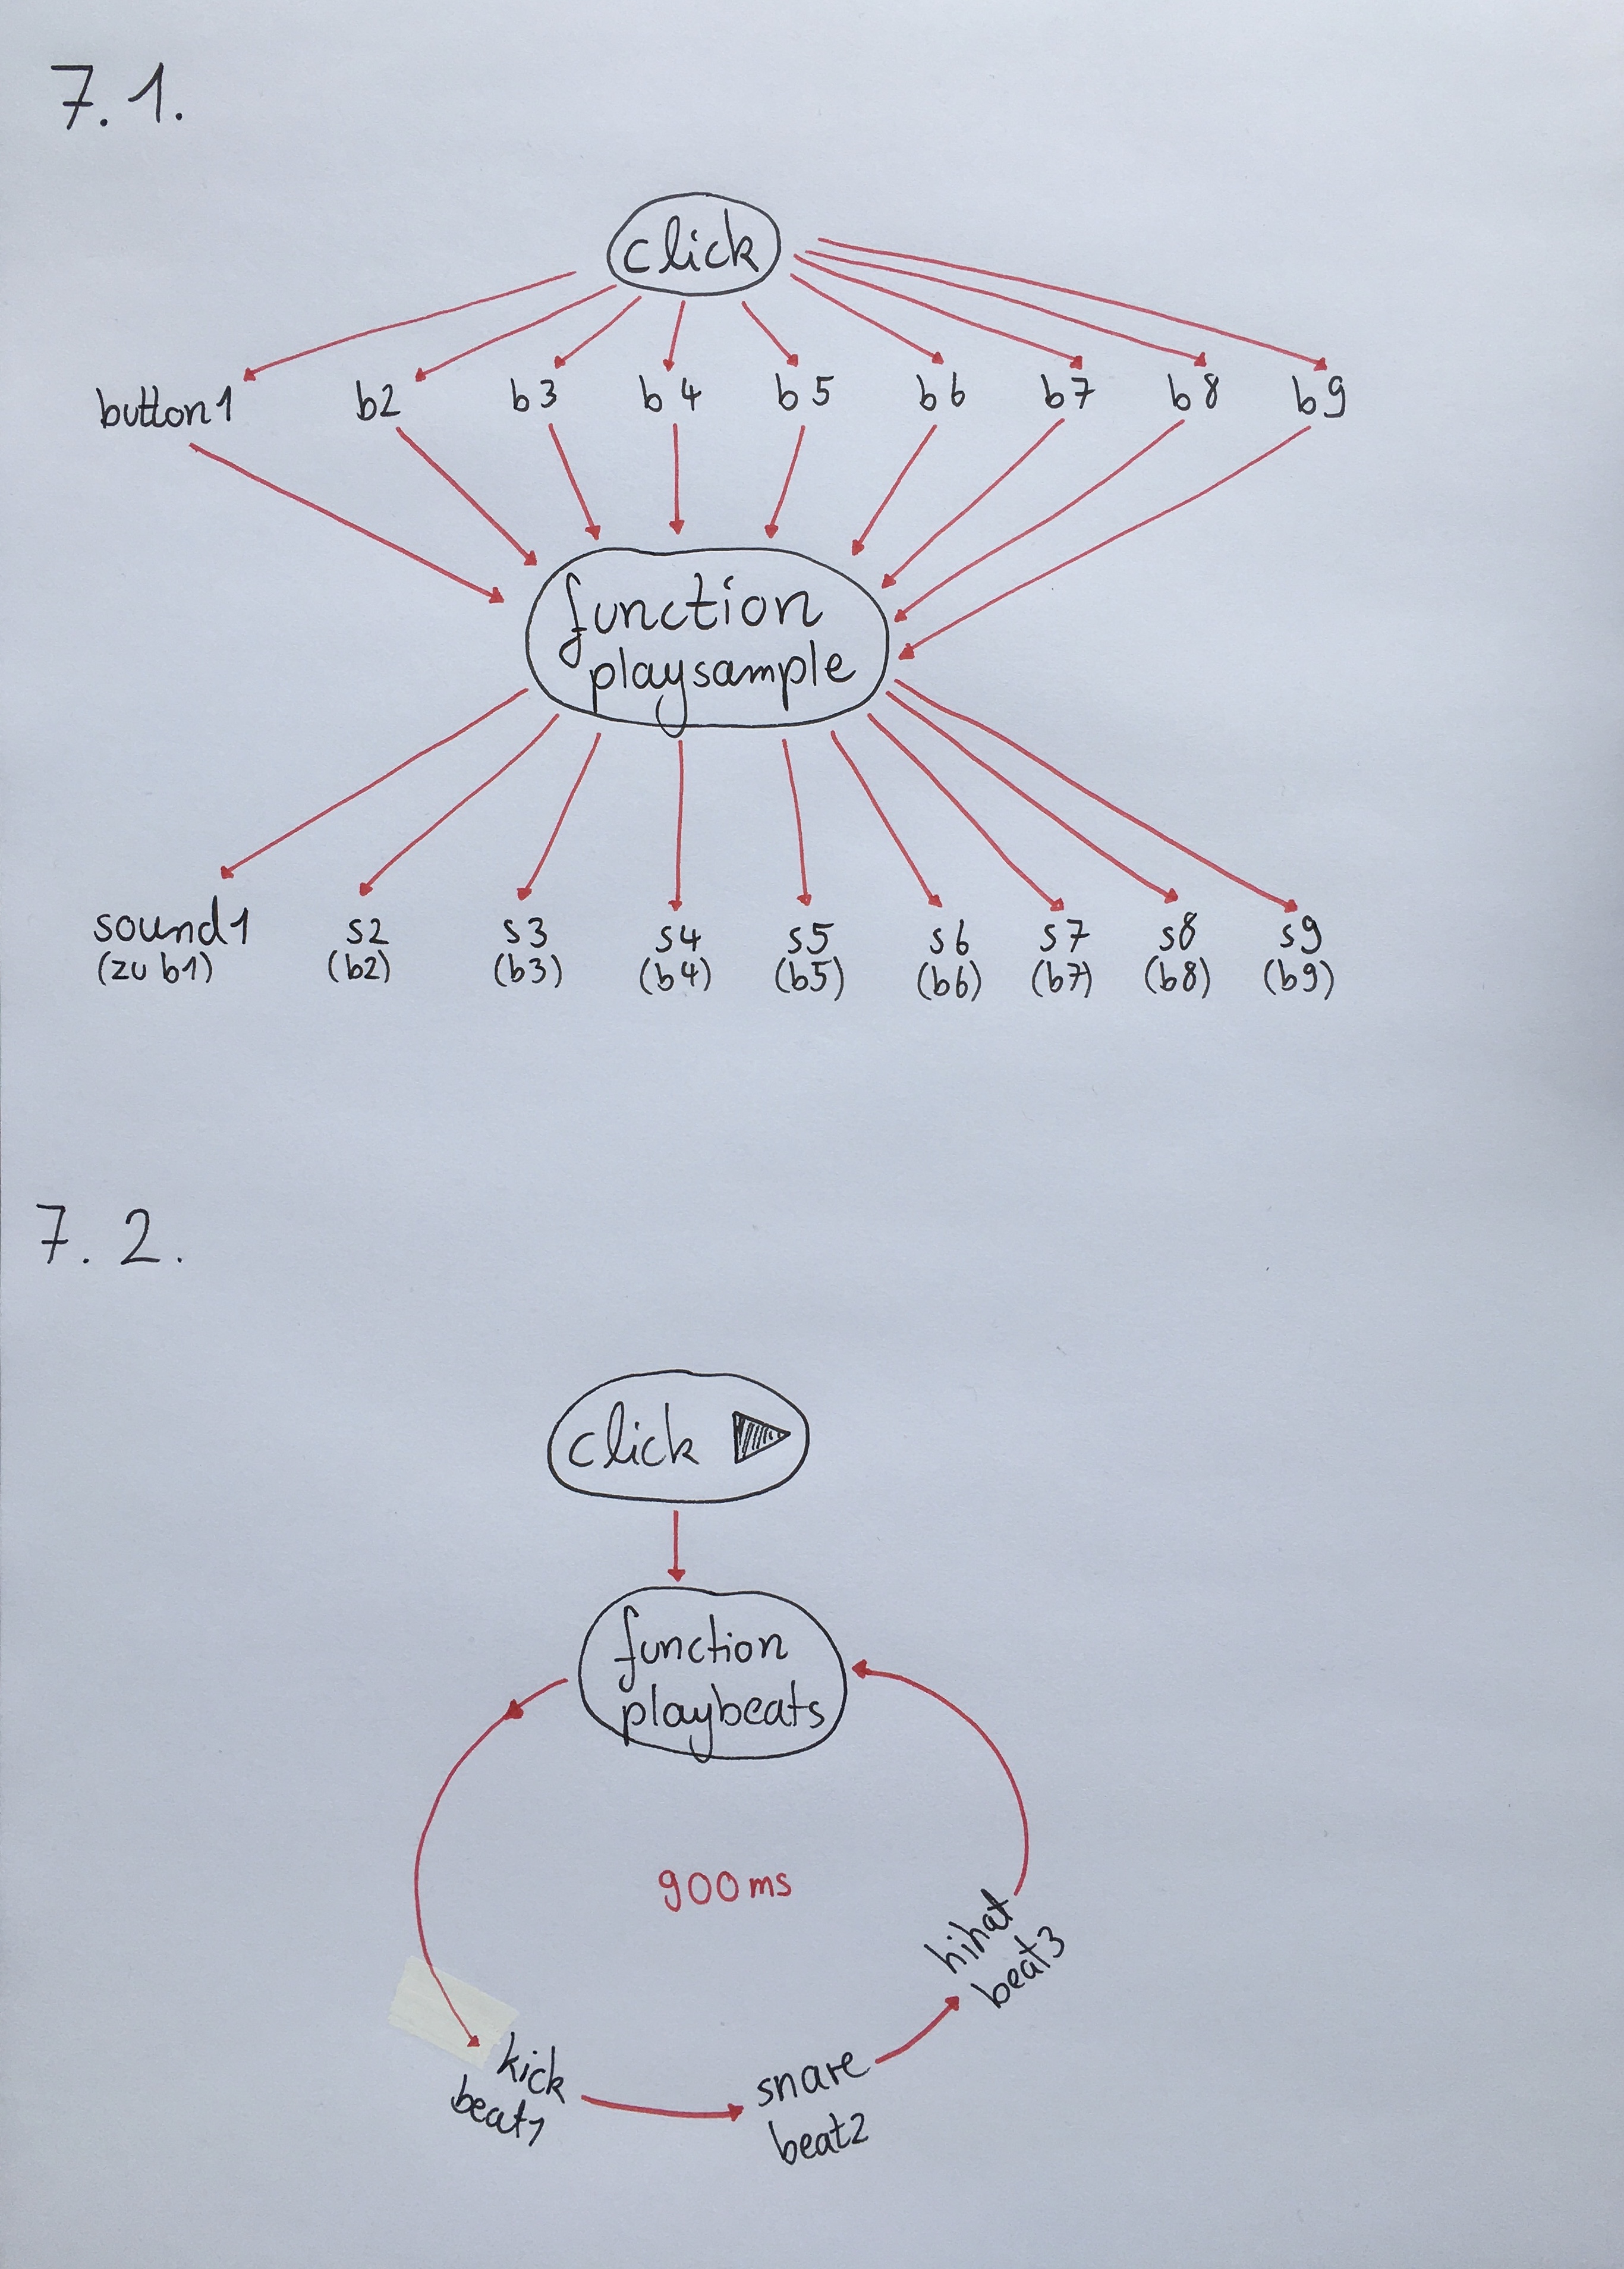 7.1.
click
button1 b2 b3 b4 b5 b6 b7 b8 b9
function
playsample
sound1 s2 s3 s4 s5 s6 s7 s8 s9
(zu b1) (b2) (b3) (b4) (b5) (b6) (b7) (b8) (b9)
7.2.
click
function
playbeats
900ms
kick
beat1
snare
beat2
hihat
beat3